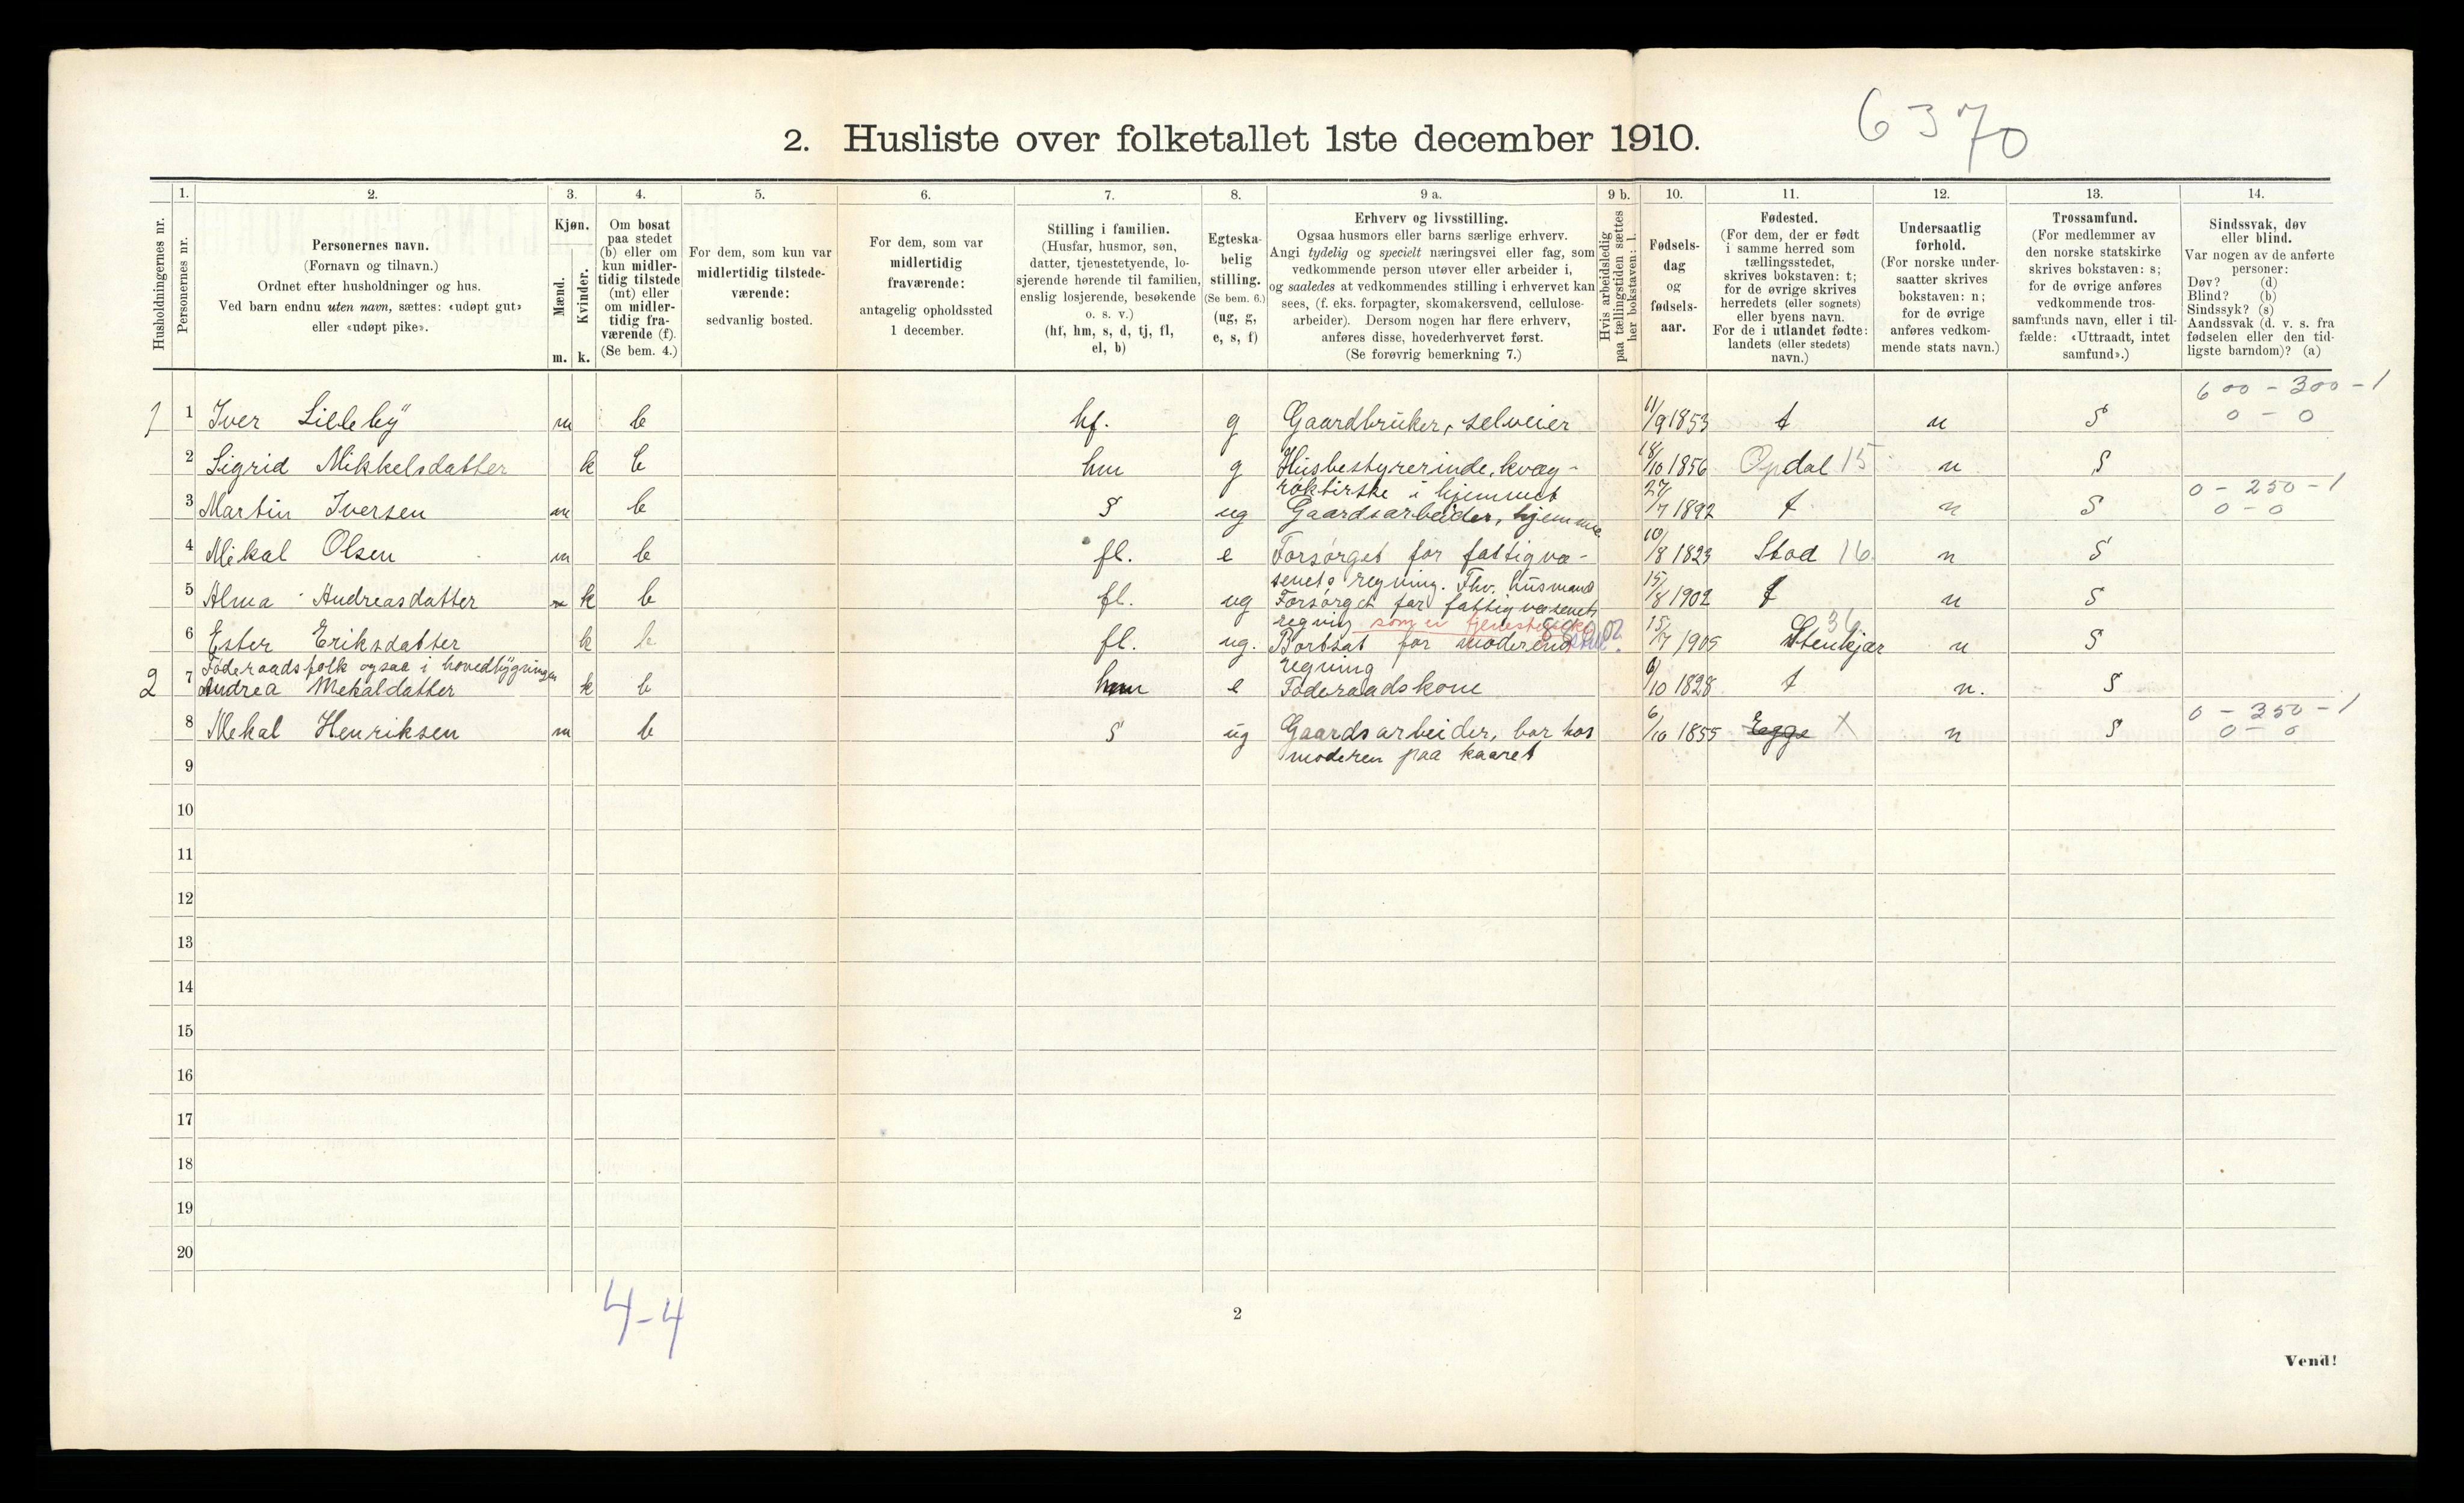 6370
2. Husliste over folketallet 1ste december 1910.
Husholdningernes nr.
1.
Personernes nr.
2.
Personernes navn.
(Fornavn og tilnavn.)
Ordnet efter husholdninger og hus.
Ved barn endnu uten navn, sættes: «udøpt gut»
eller «udøpt pike».
3.
Kjøn.
Mænd.
Kvinder.
m. k.
4.
Om bosat
paa stedet
(b) eller om
kun midler-
tidig tilstede
(mt) eller
om midler-
tidig fra-
værende (f).
(Se bem. 4.)
5.
For dem, som kun var
midlertidig tilstede-
værende:
sedvanlig bosted.
6.
For dem, som var
midlertidig
fraværende:
antagelig opholdssted
1 december.
7.
Stilling i familien.
(Husfar, husmor, søn,
datter, tjenestetyende, lo-
sjerende hørende til familien,
enslig losjerende, besøkende
o. s. v.)
(hf, hm, s, d, tj, fl,
el, b)
8.
Egteska-
belig
stilling.
(Se bem. 6.)
(ug, g,
e, s, f)
9 a.
Erhverv og livsstilling.
Ogsaa husmors eller barns særlige erhverv.
Angi tydelig og specielt næringsvei eller fag, som
vedkommende person utøver eller arbeider i,
og saaledes at vedkommendes stilling i erhvervet kan
sees, (f. eks. forpagter, skomakersvend, cellulose-
arbeider). Dersom nogen har flere erhverv,
anføres disse, hovederhvervet først.
(Se forøvrig bemerkning 7.)
9 b.
Hvis arbeidsledig
paa tællingstiden sættes
her bokstaven: l.
10.
Fødsels-
dag
og
fødsels-
aar.
11.
Fødested.
(For dem, der er født
i samme herred som
tællingsstedet,
skrives bokstaven: t;
for de øvrige skrives
herredets (eller sognets)
eller byens navn.
For de i utlandet fødte:
landets (eller stedets)
navn.)
12.
Undersaatlig
forhold.
(For norske under-
saatter skrives
bokstaven: n;
for de øvrige
anføres vedkom-
mende stats navn.)
13.
Trossamfund.
(For medlemmer av
den norske statskirke
skrives bokstaven: s;
for de øvrige anføres
vedkommende tros-
samfunds navn, eller i til-
fælde: «Uttraadt, intet
samfund».)
14.
Sindssvak, døv
eller blind.
Var nogen av de anførte
personer:
Døv? (d)
Blind? (b)
Sindssyk? (s)
Aandssvak (d. v. s. fra
fødselen eller den tid-
ligste barndom)? (a)
600 - 300 - 1
1 1 Iver Lilleby m b hf. g Gaardbruker, selveier 11/9 1853 t n S 0 - 0
2 Sigrid Mikkelsdatter k b hm g Husbestyrerinde, kvæg- 18/10 1856 Opdal 15 n S
røktirske i hjemmet 0 - 250 - 1
3 Martin Iversen m b S ug Gaardsarbeider, hjemme 27/7 1892 t n S 0 - 0
4 Mekal Olsen m b fl. e Forsørget for fattigvæ- 10/8 1823 Stod 16 n S
senets regning. Fhv. husmand
5 Alma Andreasdatter k b fl. ug Forsørget for fattigvæsenets 15/8 1902 t n S
regning som ei
6 Ester Eriksdatter k b fl. ug. Bortsat for moderens 15/7 1905 Stenkjær 36 n S
regning
Føderaadsfolk ogsaa i hovedbygningen
2 7 Andrea Mekaldatter k b hm e Føderaadskone 6/10 1828 t n. S
0 - 350 - 1
8 Mekal Henriksen m b S ug Gaardsarbeider, bor hos 6/10 1855 Egge X n S 0 - 0
moderen paa kaaret
9
10
11
12
13
14
15
16
17
18
19
20
4-4
2
Vend!